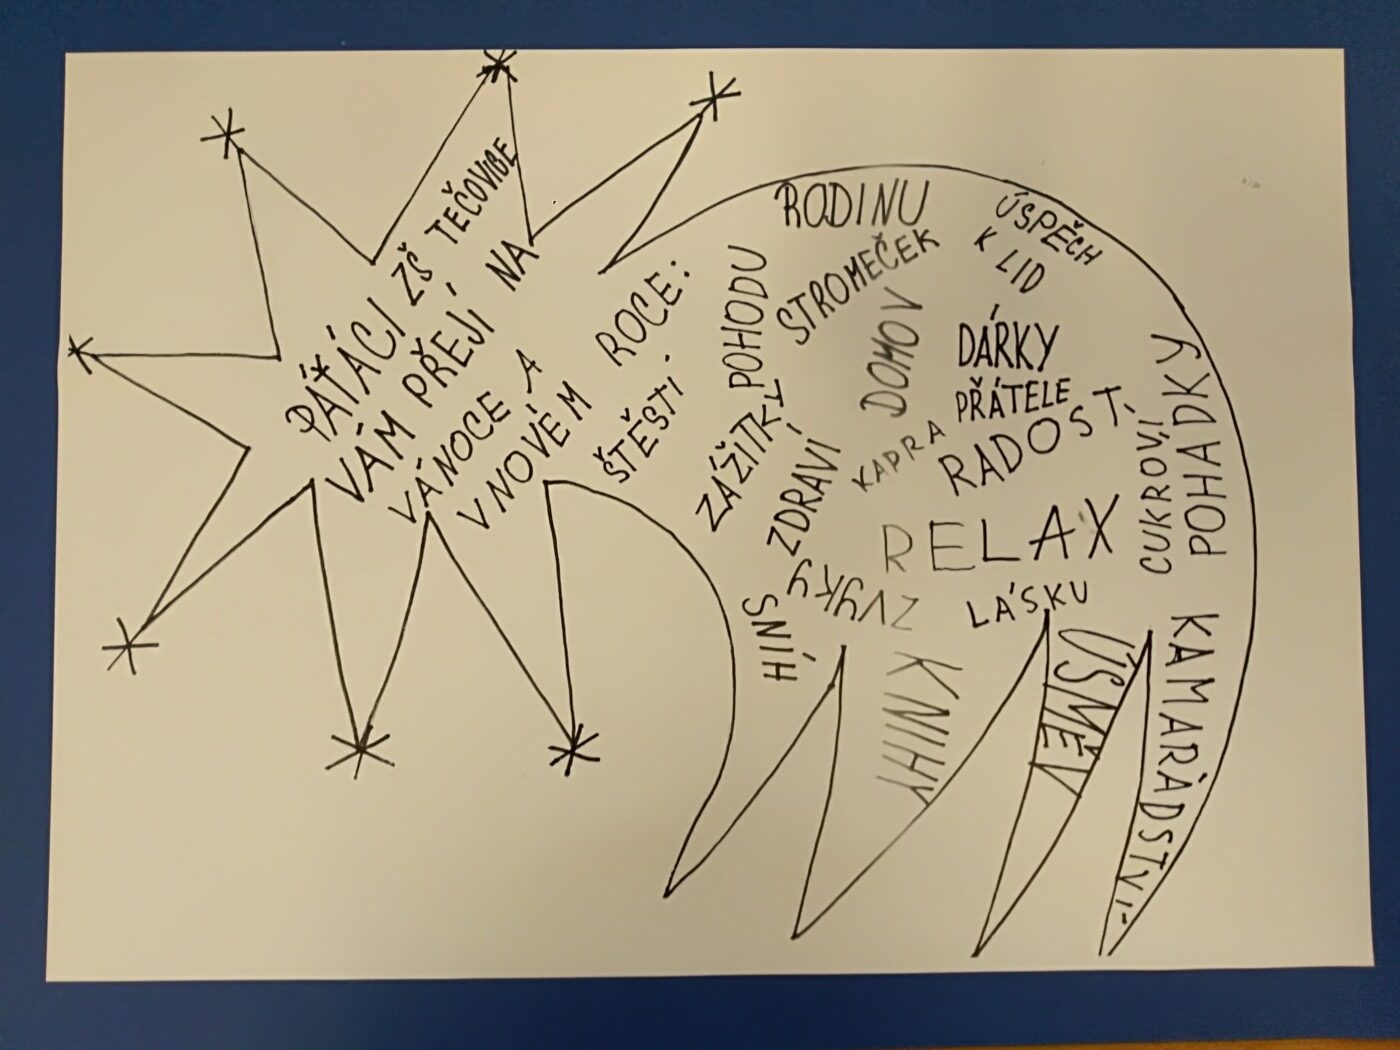 PÁŤÁCI ZŠ TEČOVICE
VÁM PŘEJÍ NA
VÁNOCE A
V NOVÉM ROCE:
ŠTĚSTÍ
POHODU
RODINU
STROMEČEK
ÚSPĚCH
KLID
DOMOV
DÁRKY
PŘÁTELE
RADOST
ZÁŽITKY
ZDRAVÍ
KAPRA
RELAX
CUKROVÍ
POHÁDKY
SNÍH
ZVYKY
LÁSKU
KNIHY
ÚSMĚV
KAMARÁDSTVÍ